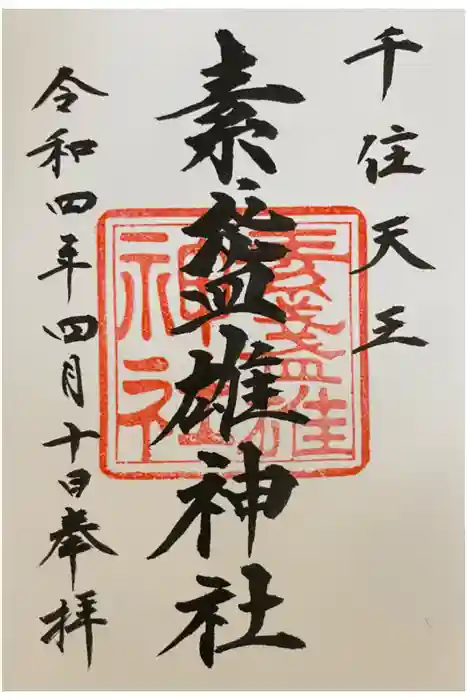 千住天王
素盞雄神社
素盞雄
神社
令和四年四月十日奉拝